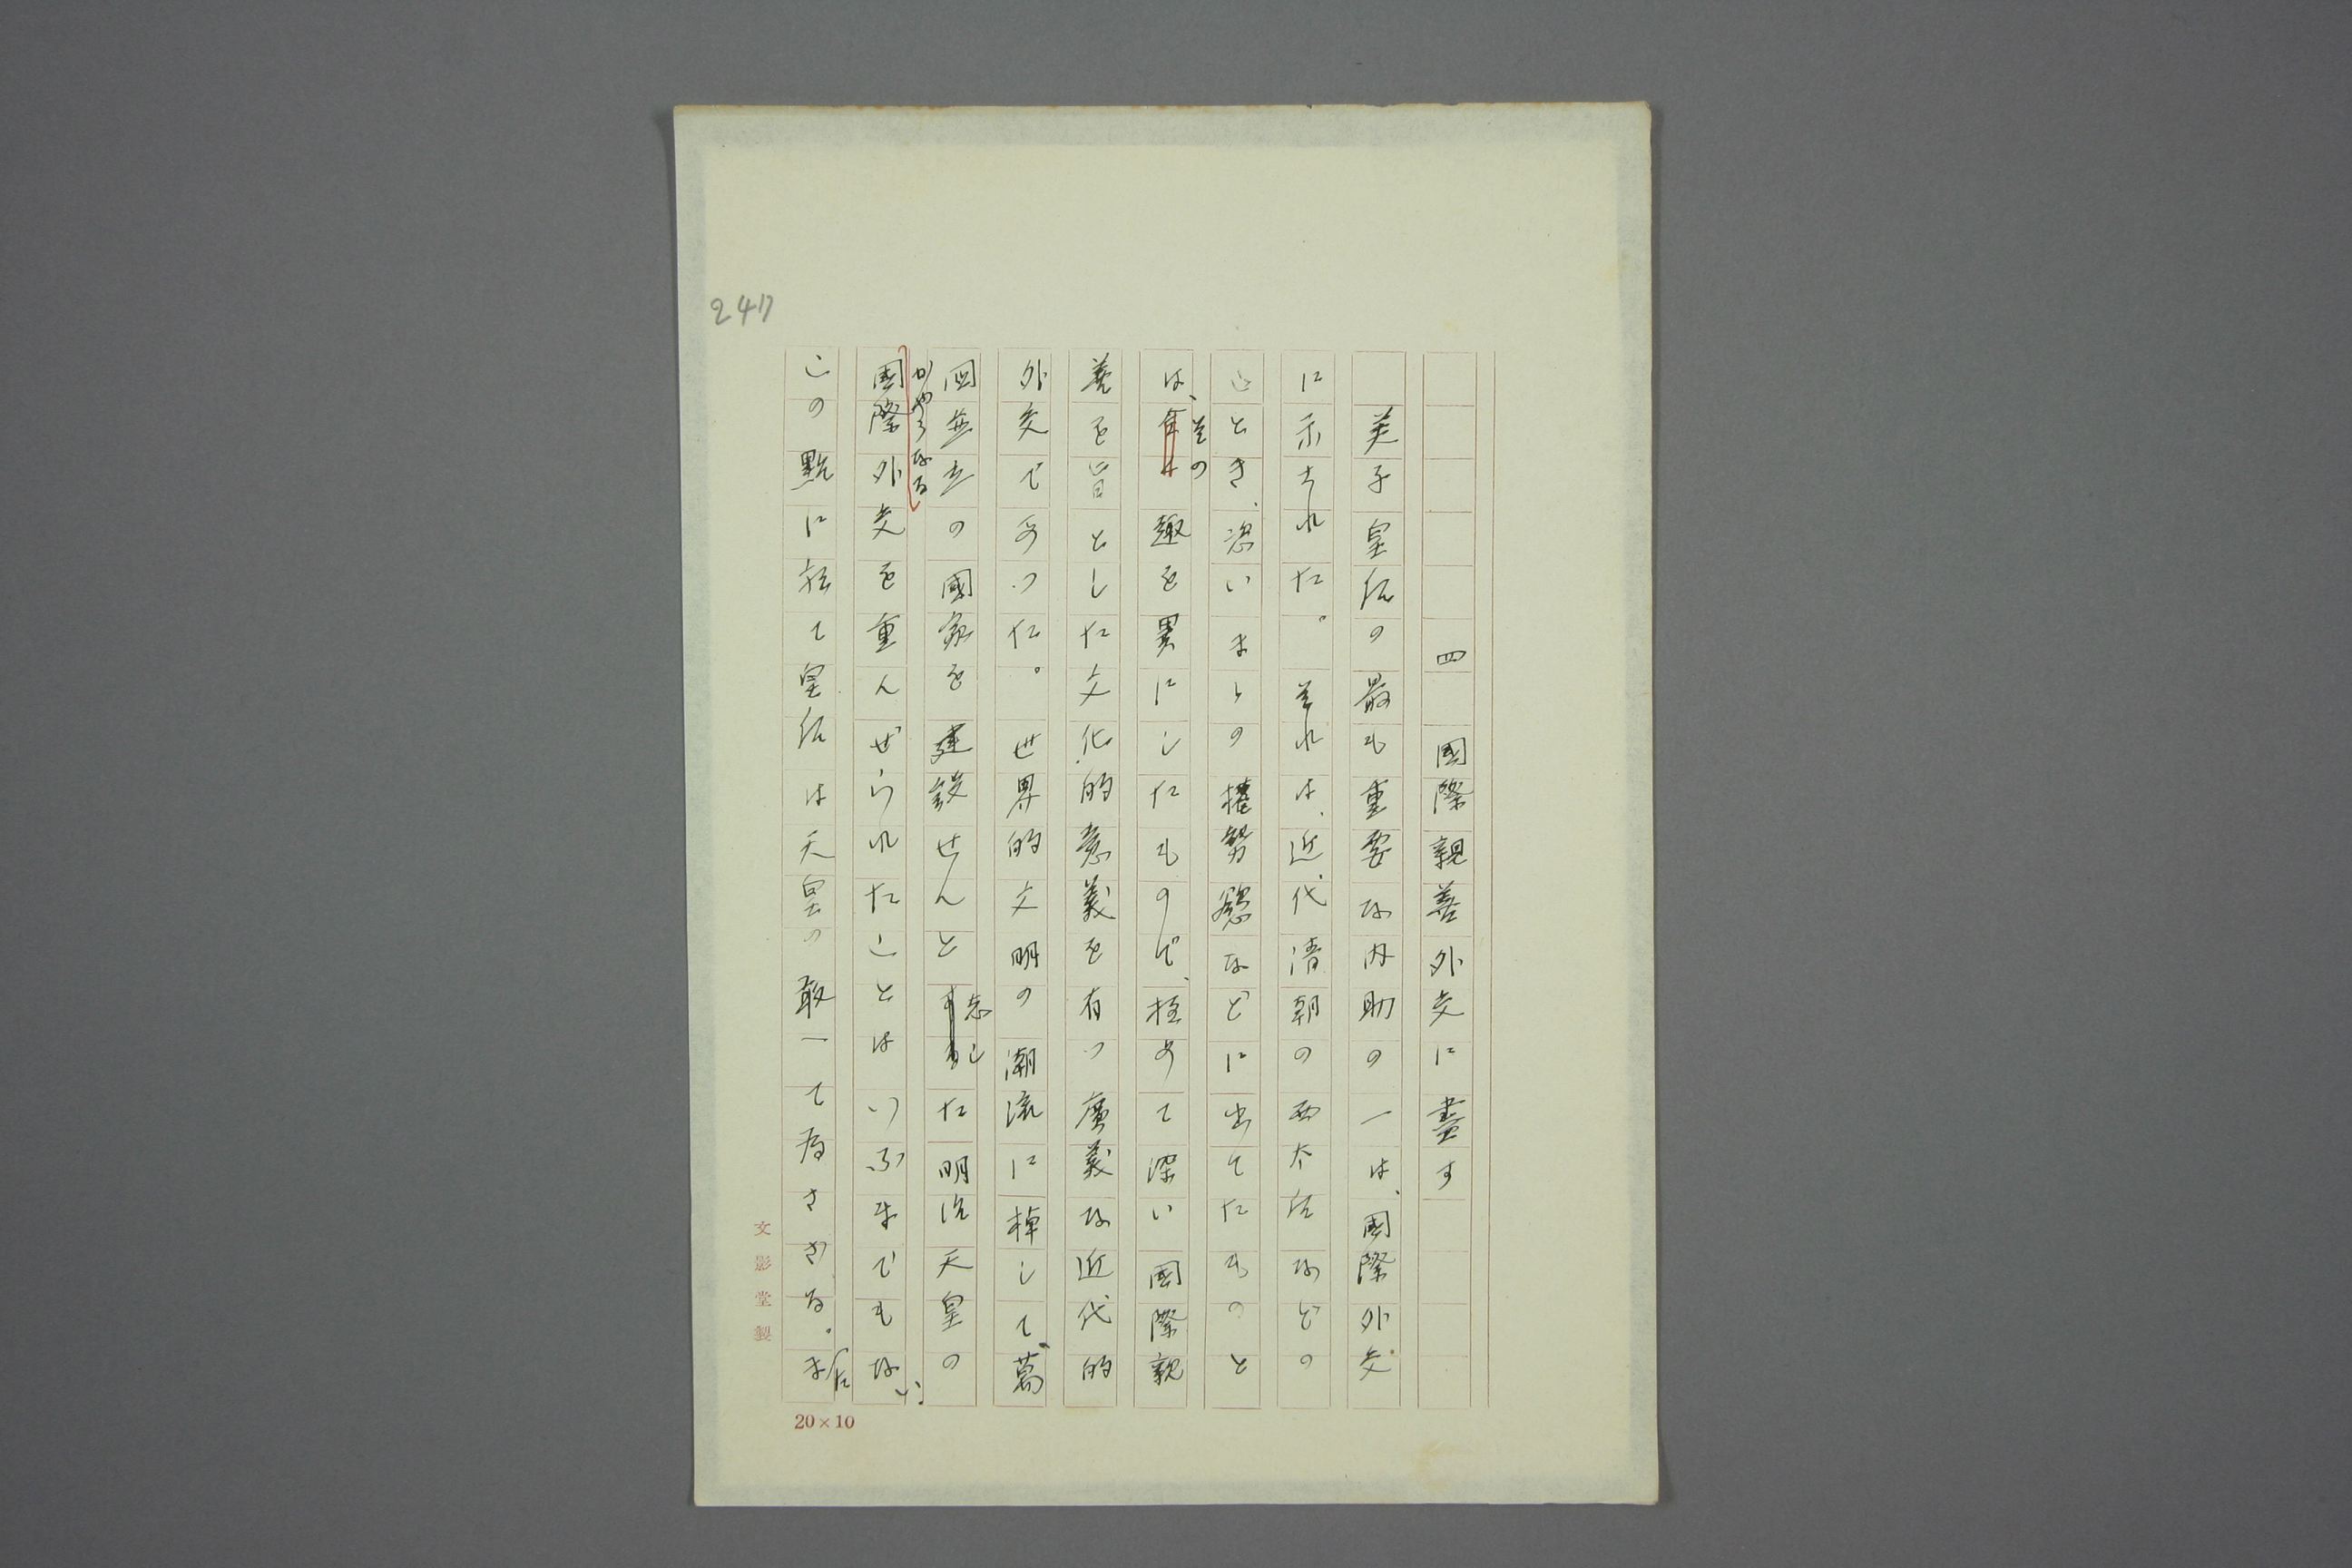 247
四 國際親善外交に盡す
美子皇后の最も重要な内助の一は、國際外交
に示された。それは、近代清朝の西太后などの
ごとき、恣いまゝの権勢慾などに出てたものと
は、その趣を異にしたもので、極めて深い國際親
善を旨とした文化的意義を有つ廣義な近代的
外交であつた。世界的文明の潮流に棹して、萬
國並立の國家を建設せんと志した明治天皇の
かやうなる國際外交を重んぜられたことはいふまでもない。
この點に於て皇后は天皇の敢一て居さきる。また
文影堂製
20×10